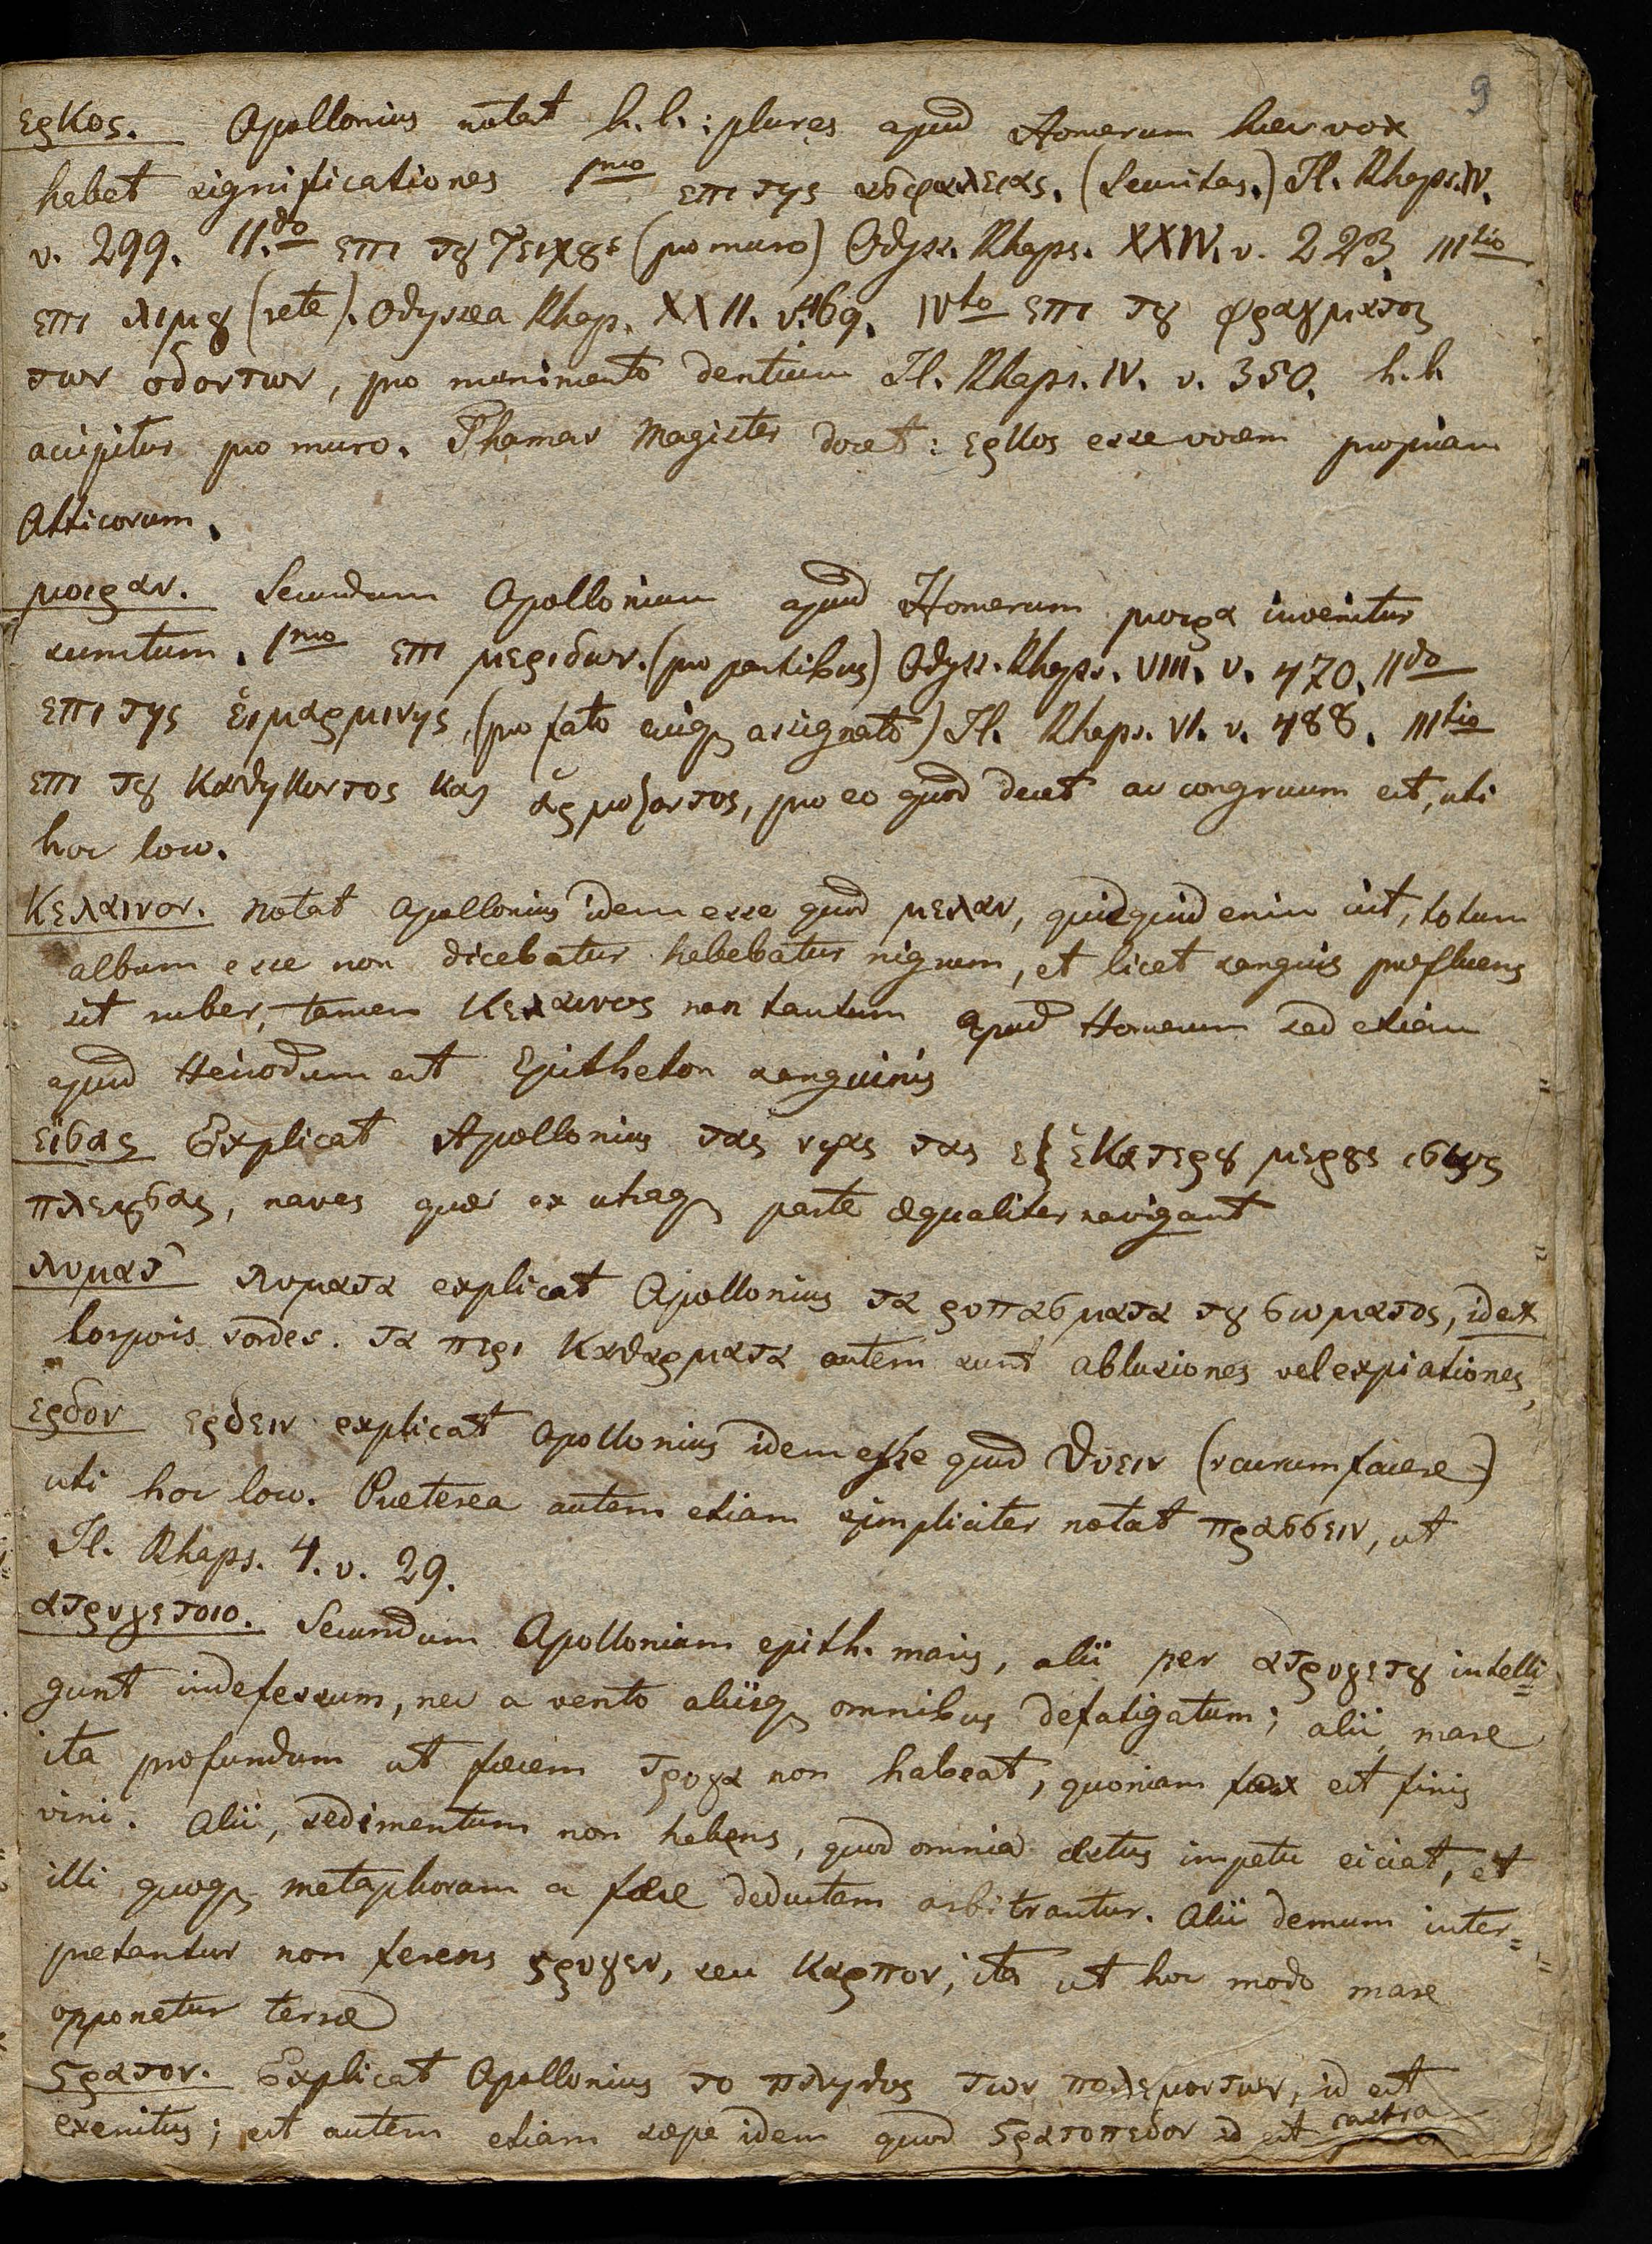 9
ερκος. Apollonius notat h. l.: plures apud Homerum haec vox
habet significationes 1mo επι της ασφαλειας. (securitas.) Il. Rhaps. IV.
v. 299. II.do επι τȣ τειχȣς (pro muro) Odyss. Rhaps. XXIV. v. 223. IIItio
επι λιμȣ (rete). Odyssea Rhap. XXII. v. 469. IVto επι τȣ φραγματος
των οδοντων, pro munimento dentium Il. Rhaps. IV. v. 350. h. l.
accipitur pro muro. Thomas Magister docet: ερκος esse vocem propriam
Atticorum.
μοιραν. Secundum Apollonium apud Homerum μοιρα invenitur
sumtum. 1mo επι μεριδων. (pro partibus) Odyss. Rhaps. VIII. v. 470. IIdo
επι της ἑιμαρμινης, (pro fato cuiq assignato) Il. Rhaps. VI. v. 488. IIItio
επι τȣ καθηκοντος και ἁρμοζοντος, pro eo quod decet ac congruum est, uti
hoc loco.
Κελαινον. Notat Apollonius idem esse quod μελαν, quidquid enim totum
album esse non dicebatur habebatur nigrum, et licet sanguis profluens
sit ruber, tamen Κελαινος non tantum apud Homerum sed etiam
apud Hesiodum est Epitheton sanguinis
εϊσας Explicat Apollonius τας νηας τας εξ ἑκατερȣ μερȣς ισως
πλεȣσας, naves quae ex utraq parte aequaliter navigant
λυματ' λυματα explicat Apollonius τα ρυπασματα τȣ σωματος, id est
Corporis sordes. τα περι Καθαρματα autem sunt ablusiones vel expiationes,
ερδον ερδειν explicat Apollonius idem esse quod θυειν (sacrum facere)
uti hoc loco. Praeterea autem etiam simpliciter notat πρασσειν, ut
Il. Rhaps. 4. v. 29.
ατρυγετοιο. Secundum Apollonium epith. maris, alii per ατρυγετȣ intelli=
gunt indefessum, nec a vento aliisq omnibus defatigatum; alii, mare
ita profundum ut faecem τρυγα non habeat, quoniam faex est finis
vini. Alii, sedimentum non habens, quod omnia aestus impetu eiciat, et
illi quoq metaphoram a faece deductam arbitrantur. Alii demum inter=
pretantur non ferens τρυγεν, seu καρπον, ita ut hoc modo mare
opponetur terrae
ϛρατον. Explicat Apollonius το πληθος των πολεμοντων, id est
exercitus; est autem etiam saepe idem quod ϛρατοπεδον id est castra